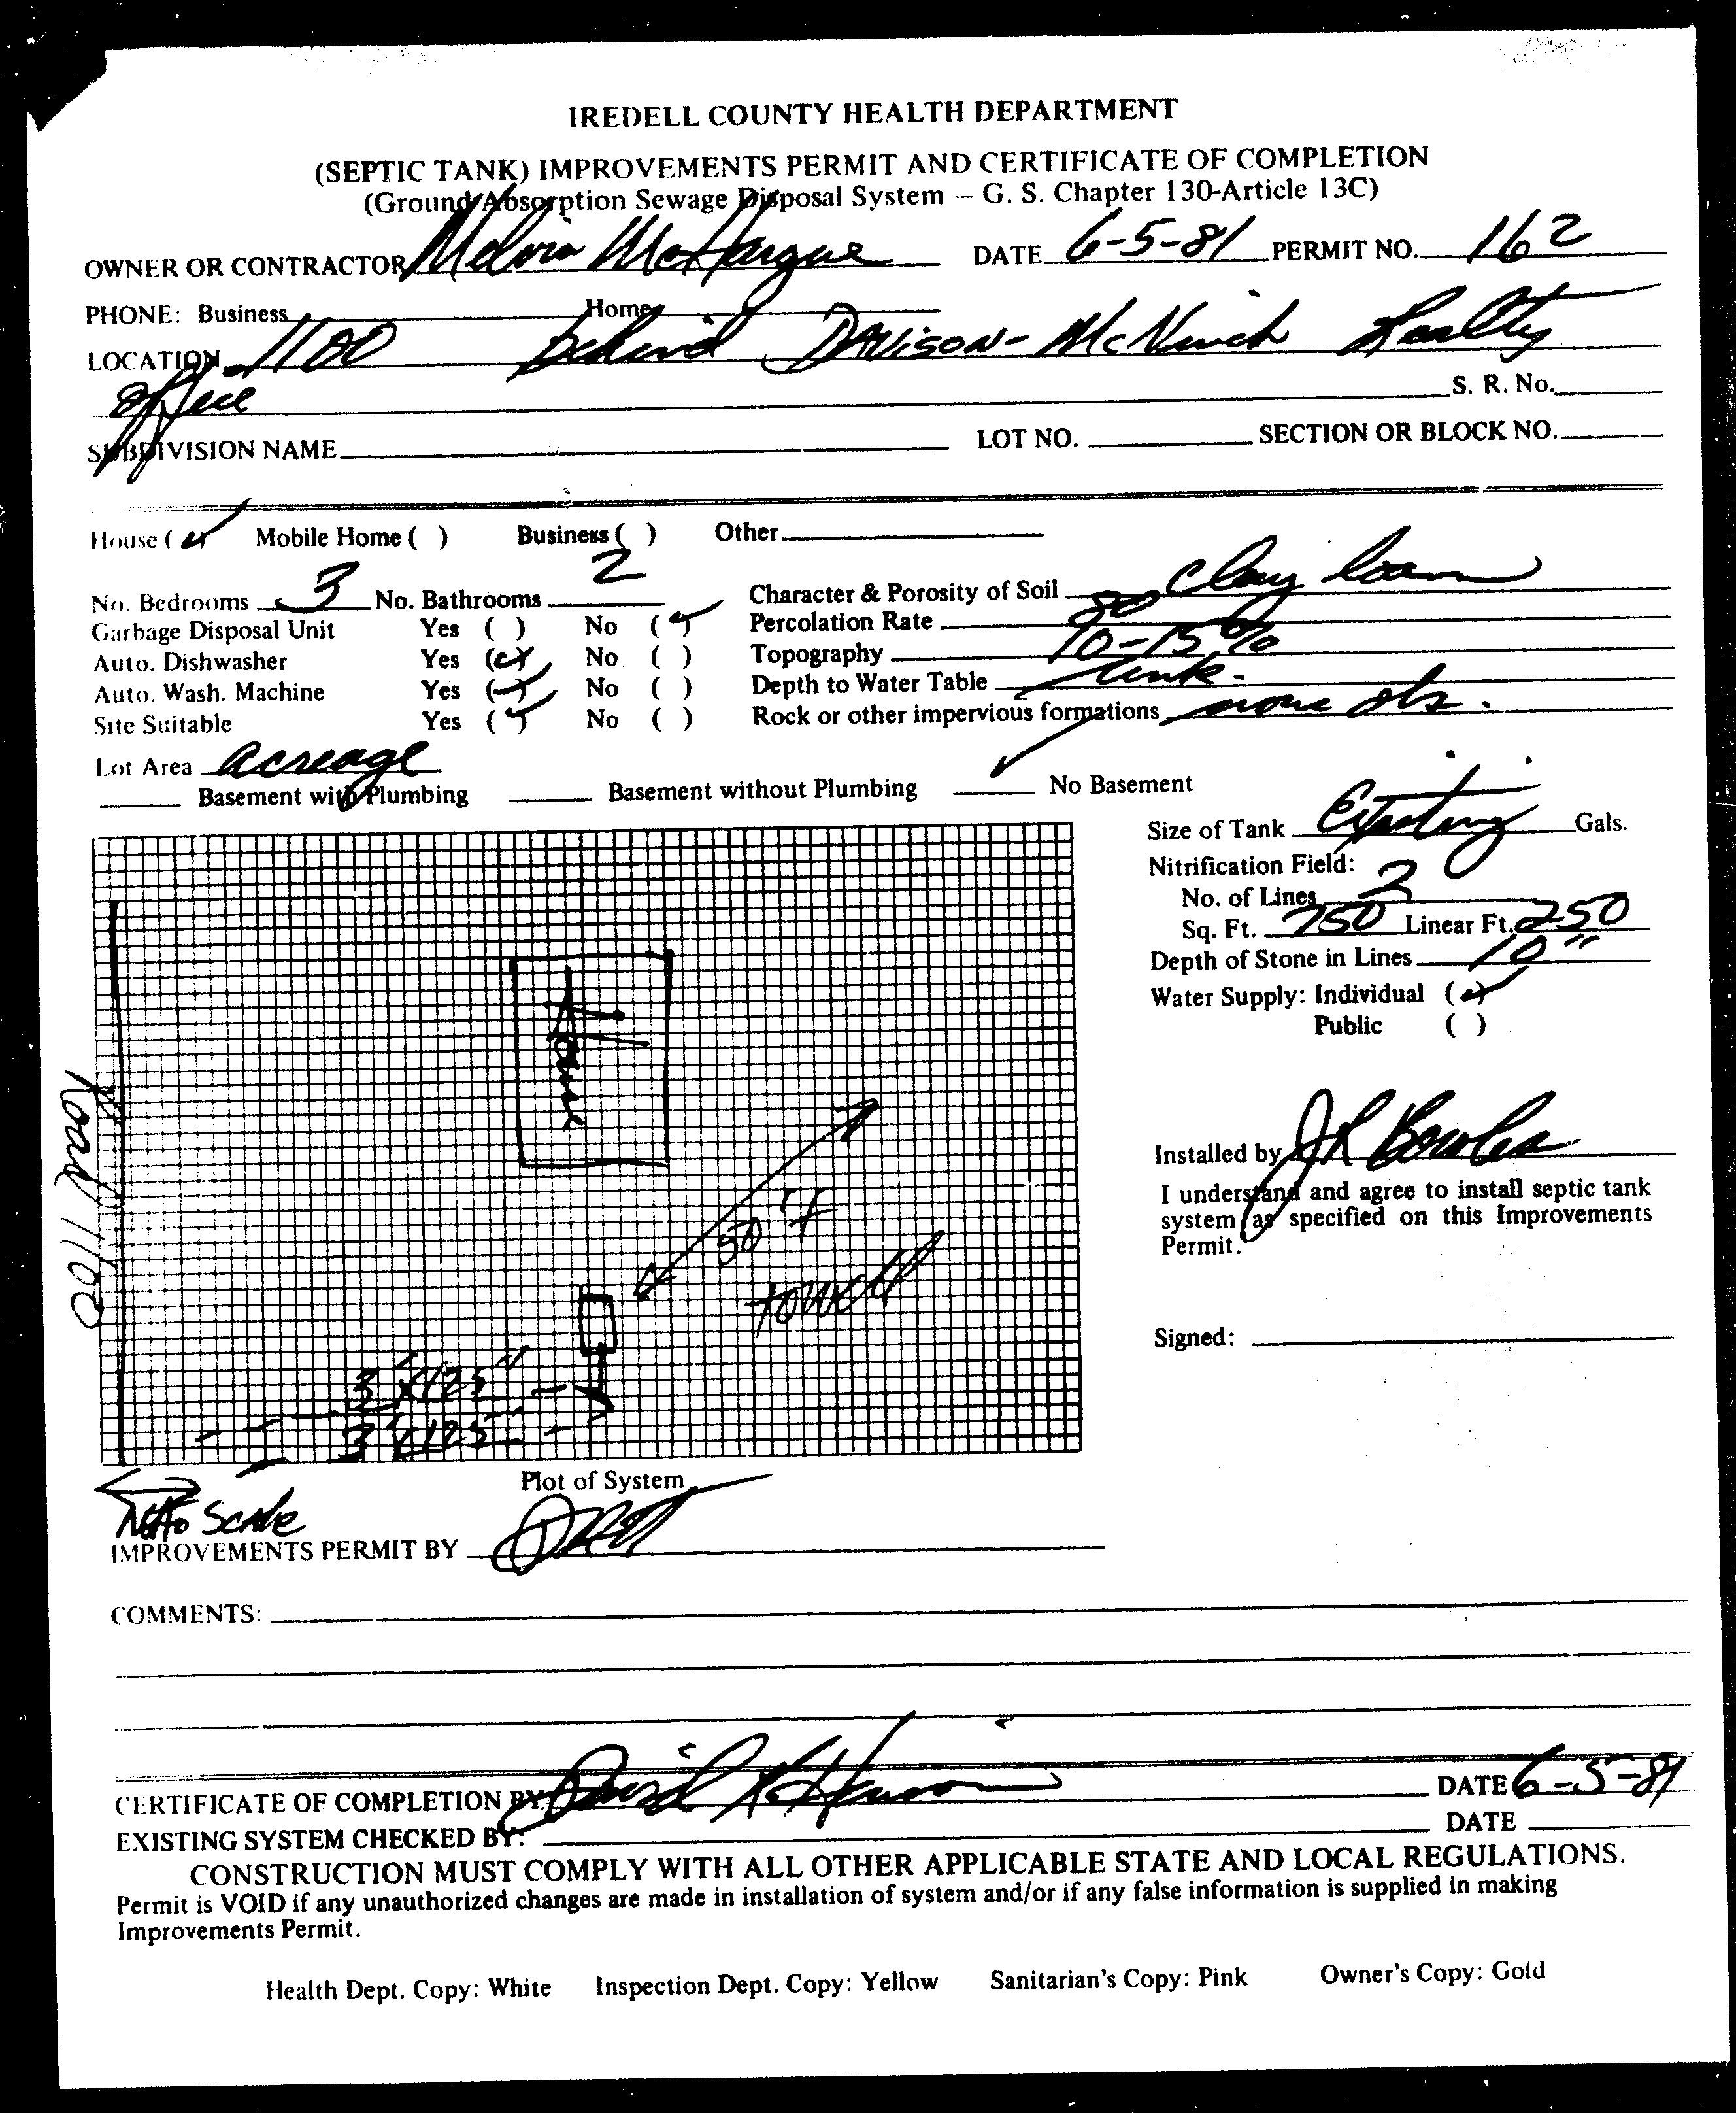 IREDELL COUNTY HEALTH DEPARTMENT
(SEPTIC TANK) IMPROVEMENTS PERMIT AND CERTIFICATE OF COMPLETION
(Ground Absorption Sewage Disposal System -- G. S. Chapter 130-Article 13C)
OWNER OR CONTRACTOR Melvin McHargue DATE 6-5-81 PERMIT NO. 162
PHONE: Business Home
LOCATION 1100 behind Davison-McNeich Realty
office S. R. No.
SUBDIVISION NAME LOT NO. SECTION OR BLOCK NO.
House (✓) Mobile Home ( ) Business ( ) Other
No. Bedrooms 3 No. Bathrooms 2 Character & Porosity of Soil clay loam
Garbage Disposal Unit Yes ( ) No (✓) Percolation Rate 80
Auto. Dishwasher Yes (✓) No. ( ) Topography 10-15%
Auto. Wash. Machine Yes (✓) No ( ) Depth to Water Table unk.
Site Suitable Yes (✓) No ( ) Rock or other impervious formations none obs.
Lot Area acreage
Basement with Plumbing Basement without Plumbing ✓ No Basement
Size of Tank Existing Gals.
Nitrification Field:
No. of Lines 2
Sq. Ft. 750 Linear Ft. 250
Depth of Stone in Lines 10"
Water Supply: Individual (✓)
Public ( )
House
Road 1100
50'+
to well
3'x125'
3'x125'
Installed by JR Bowles
I understand and agree to install septic tank
system as specified on this Improvements
Permit.
Signed:
Plot of System
Not to Scale
IMPROVEMENTS PERMIT BY
COMMENTS:
CERTIFICATE OF COMPLETION BY: David DATE 6-5-81
EXISTING SYSTEM CHECKED BY: DATE
CONSTRUCTION MUST COMPLY WITH ALL OTHER APPLICABLE STATE AND LOCAL REGULATIONS.
Permit is VOID if any unauthorized changes are made in installation of system and/or if any false information is supplied in making
Improvements Permit.
Health Dept. Copy: White Inspection Dept. Copy: Yellow Sanitarian's Copy: Pink Owner's Copy: Gold